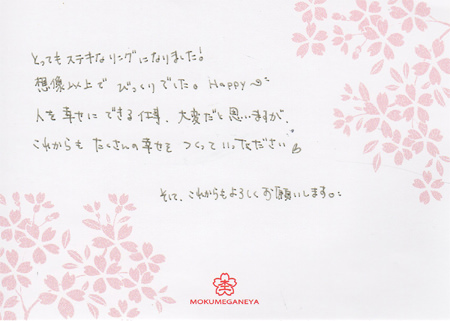 とってもステキなリングになりました!
想像以上でびっくりでした。Happy
人を幸せにできる仕事、大変だと思いますが、
これからもたくさんの幸せをつくっていってください
そして、これからもよろしくお願いします。
MOKUMEGANEYA